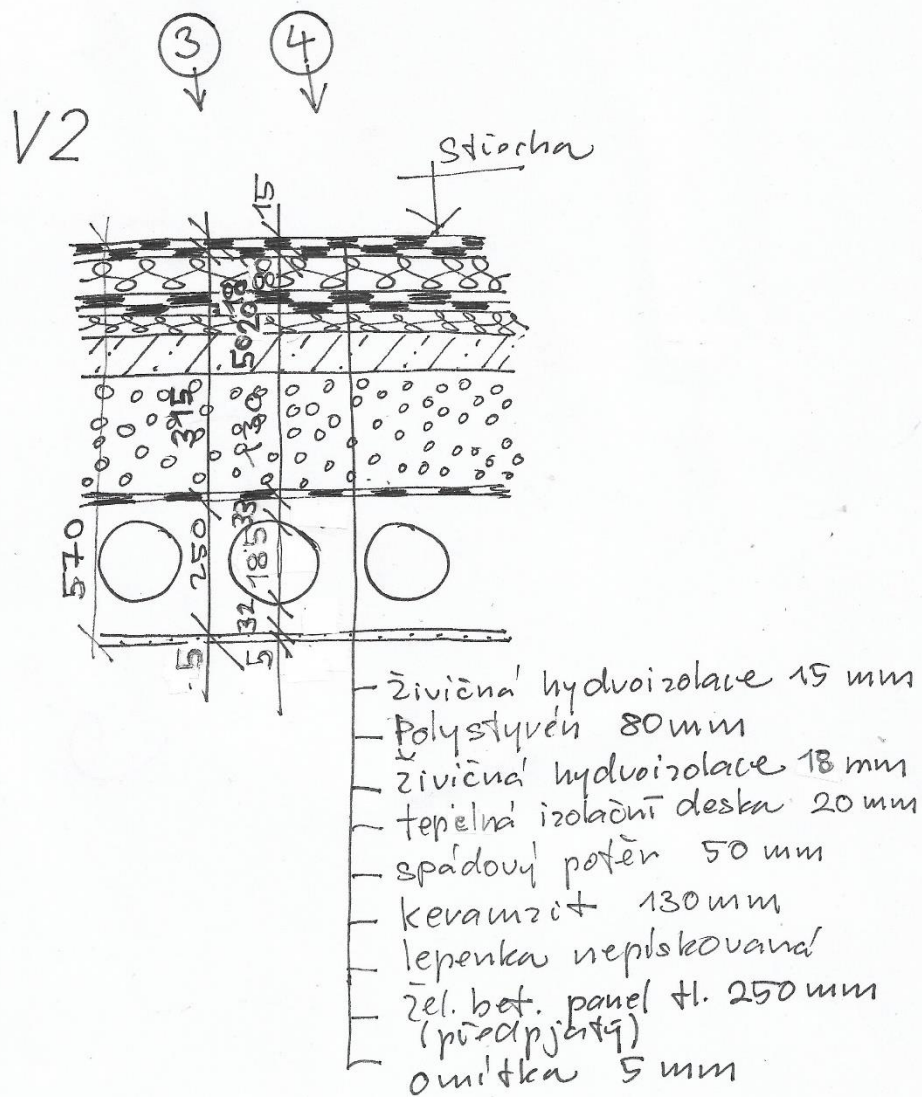 3 4
V2
střecha
15
18 80
20
50
315 130
33
570 250 185
32
5 5
živičná hydroizolace 15 mm
Polystyrén 80mm
živičná hydroizolace 18 mm
tepelná izolační deska 20 mm
spádový potěr 50 mm
keramzit 130mm
lepenka nepískovaná
žel. bet. panel tl. 250 mm
(předpjatý)
omítka 5 mm